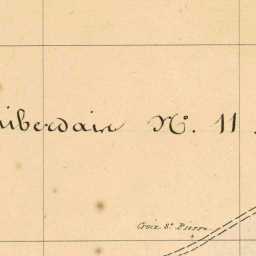 iberdain N.° 11
Croix St. Pierre